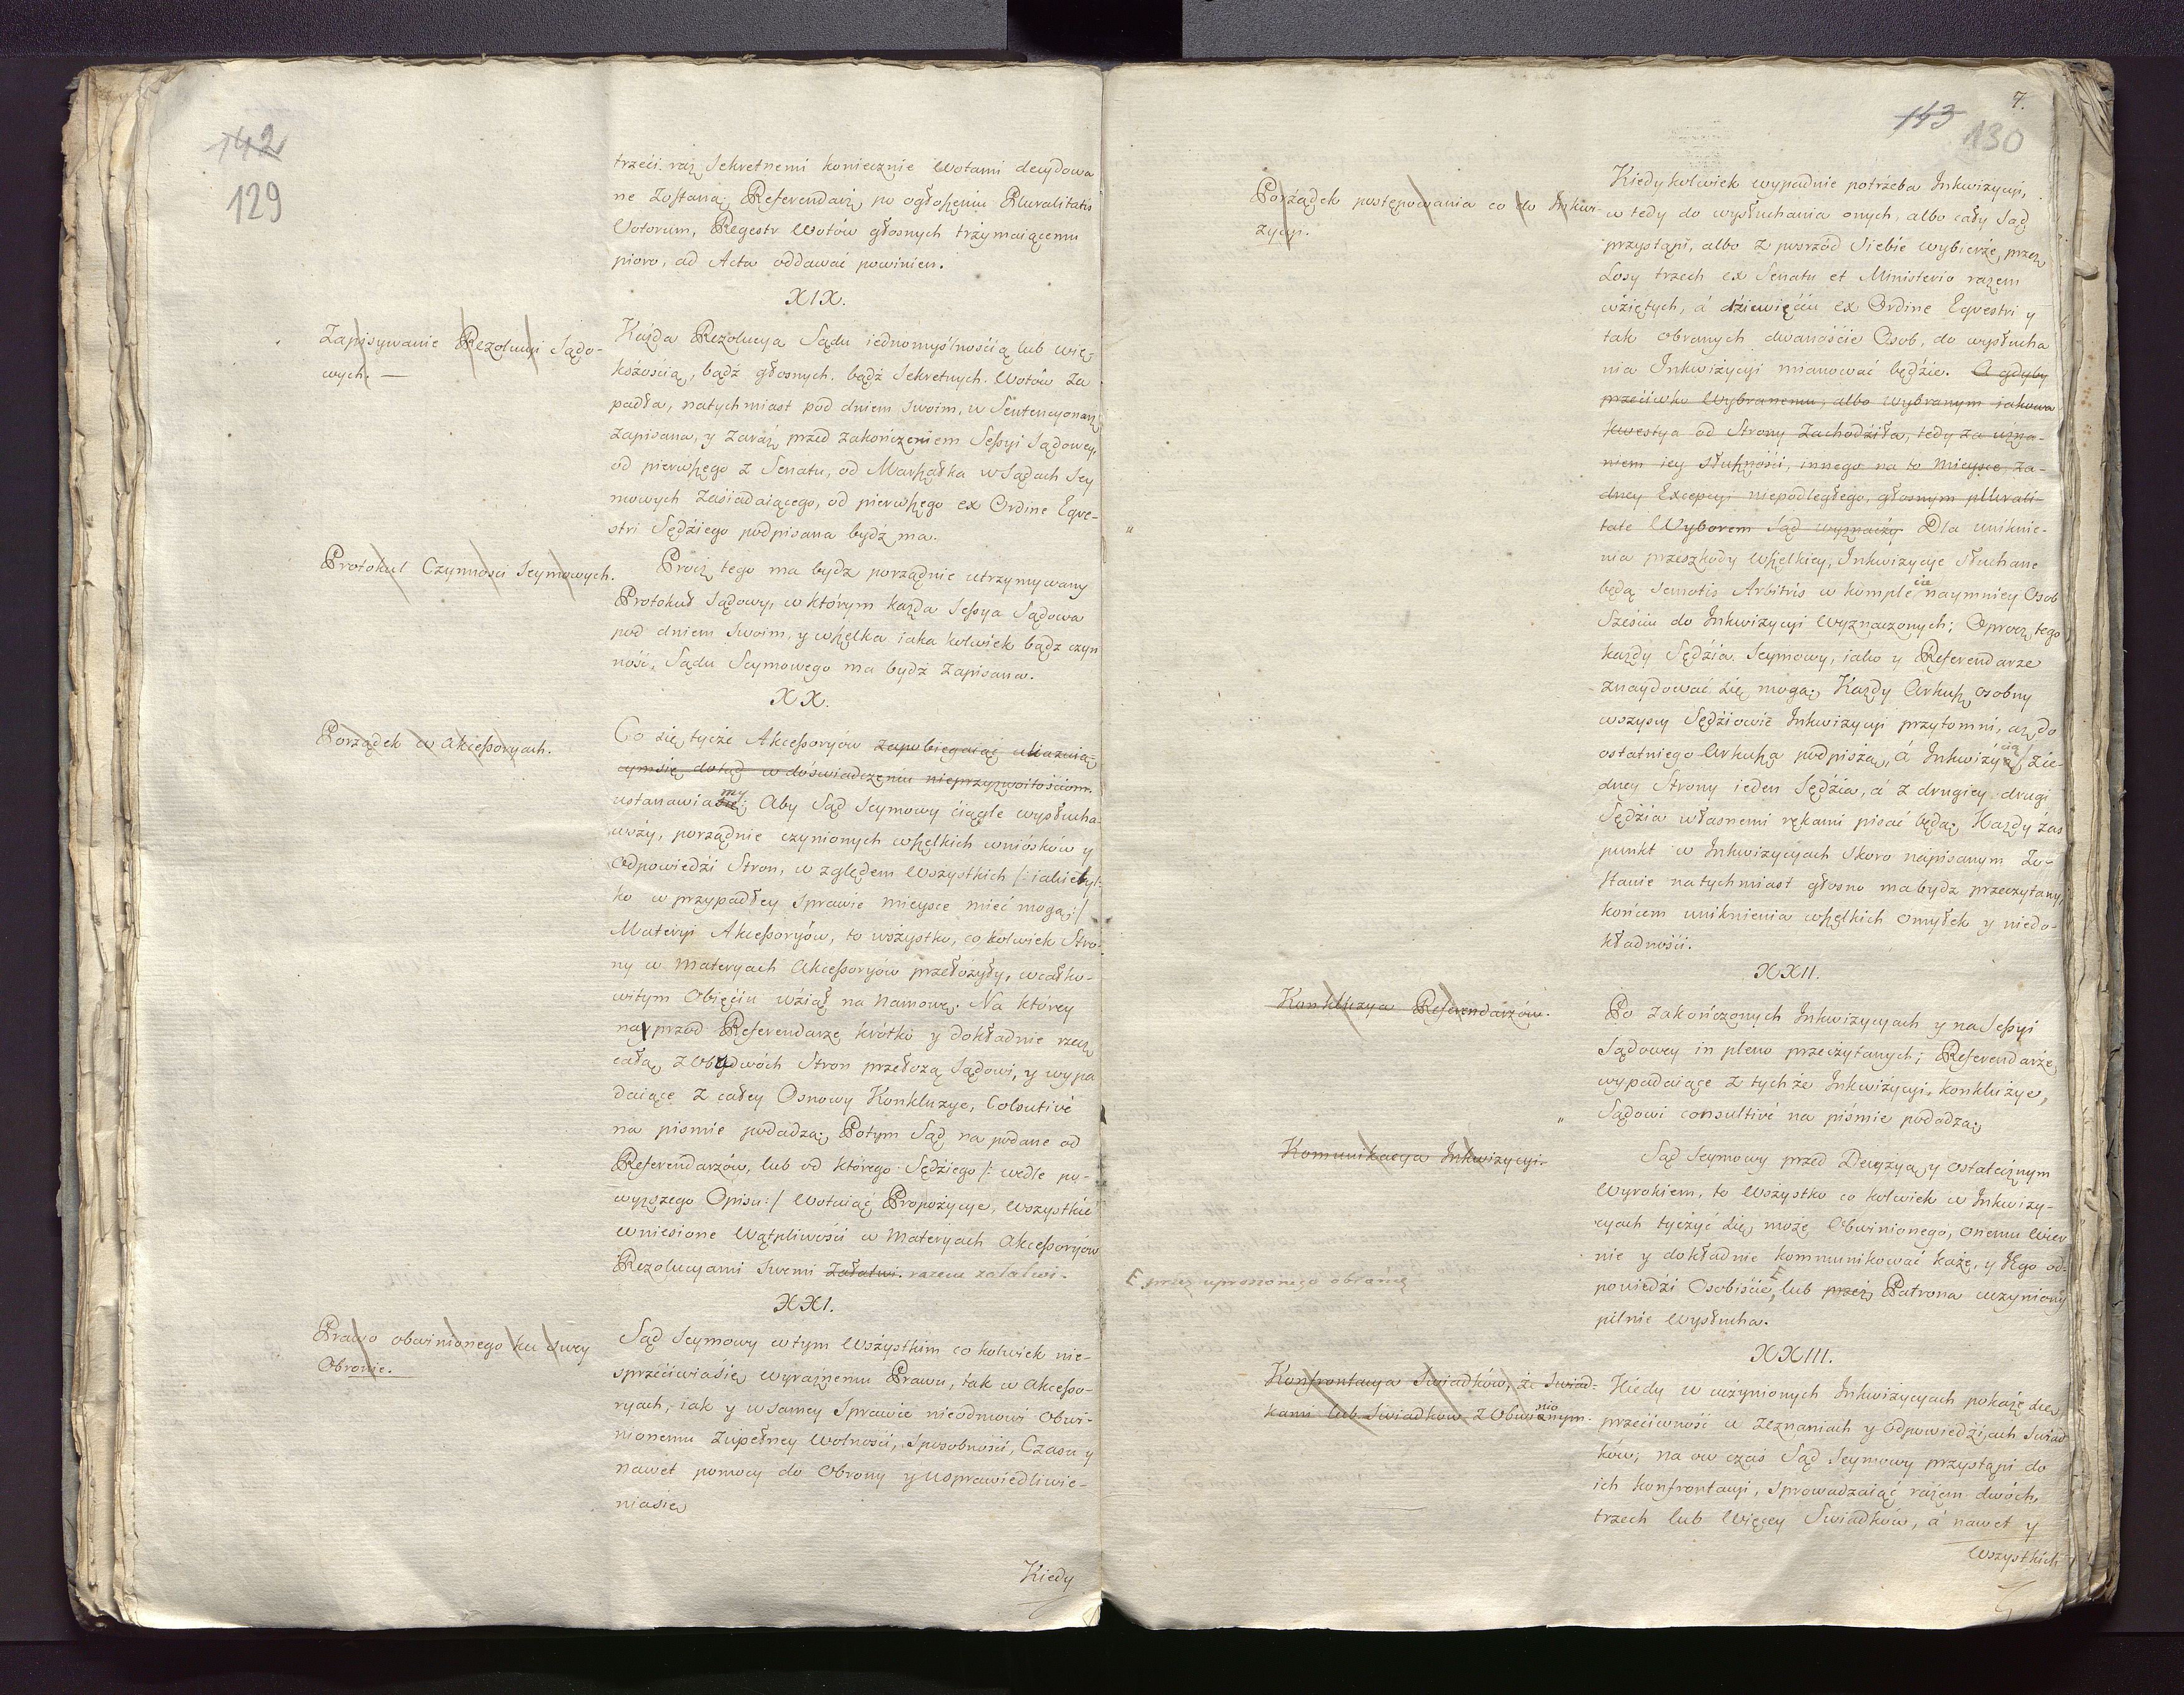 142
129
trzeci raz Sekretnemi koniecznie Wotami decydowa
ne zostaną; Referendarz po ogłoszeniu Pluralitatis
Votorum, Regestr Wotów głosnych trzymaiącemu
pioro, ad Acta oddawać powinien.
XIX.
Zapisywanie Rezolucyi Sądo-
wych. —
Każda Rezolucya Sądu iednomyślnością lub wię-
kszością, bądź głosnych, bądź Sekretnych Wotów za
padła, natychmiast pod dniem swoim, w Sentencyonarz
zapisana, y zaraz przed zakończeniem Seßyi Sądowey,
od pierwszego z Senatu, od Marszałka w Sądach Sey
mowych zasiadaiącego, od pierwszego ex Ordine Eqve-
stri Sędziego podpisana bydź ma.
Protokul Czynności Seymowych.
Procz tego ma bydz porządnie utrzymywany
Protokuł Sądowy, w którym każda Seßya Sądowa
pod dniem swoim, y wszelka iaka kolwiek bądz czyn
ność, Sądu Seymowego ma bydź zapisana.
XX.
Porządek w akceßoryach.
Co się tycze Akceßoryów zapobiegaiąc ukazuią-
cym się dotąd w doświadczeniu nieprzyzwoitościom.
ustanawia się my; Aby Sąd Seymowy ciągle wysłucha-
wszy, porządnie czynionych wszelkich wniosków y
Odpowiedzi Stron, względem Wszystkich /: iakie tyl-
ko w przypadłey Sprawie mieysce mieć mogą :/
Materyi Akceßoryów, to wszystko, co kolwiek Stro-
ny w Materyach Akceßoryów przełożyły, w całko-
witym Obięciu wziął na namowę. Na którey
nayprzod Referendarze krótko y dokładnie rzecz
całą z obydwóch Stron przełożą Sądowi, y wypa
daiące z całey Osnowy Konkluzye, Colsutivé
na pismie podadzą; Potym Sąd na podane od
Referendarzów, lub od którego Sędziego /: wedle po-
wyższego Opisu :/ Wotuiąc Propozycye, Wszystkie
wniesione Wątpliwości w Materyach Akceßoryów
Rezolucyami swemi załatwi. razem załatwi.
XXI.
Prawo obwinionego ku swey
Obronie.
Sąd Seymowy w tym Wszystkim co kolwiek nie-
sprzeciwiasię wyraznemu Prawu, tak w Akceßo-
ryach, iak y w samey Sprawie nieodmowi Obwi-
nionemu zupełney Wolności, Sposobności, Czasu y
nawet pomocy do Obrony y Usprawiedliwie-
niasię
Kiedy
7.
143
130
Porządek postępowania co do Inkwi-
zycyi.
Kiedykolwiek wypadnie potrzeba Inkwizycyi,
w tedy do wysłuchania onych, albo cały Sąd
przystąpi, albo z posrzód Siebie wybierze, przez
Losy trzech ex Senatu et Ministerio razem
wziętych, á dziewięciu ex Ordine Eqvestri y
tak obranych dwanaście Osob, do wysłucha
nia Inkwizycyi mianować będzie. A gdyby
przeciwko Wybranemu, albo wybranym iakowa
kwestya od Strony zachodziła, tedy za uzna-
niem iey słuszności, innego na to Mieysce, ża-
dney Excepcyi niepodległego, głosnym plurali-
tate Wyborem Sąd wyznaczy. Dla uniknie-
nia przeszkody Wszelkiey, Inkwizycye słuchane
będą Semotis Arbitris w komplecie naymniey Osob
Sześciu do Inkwizycyi Wyznaczonych; Oprocz tego
każdy Sędzia Seymowy, iako y Referendarze
znaydować się mogą; Każdy Arkusz osobny
wszyscy Sędziowie Inkwizycyi przytomni, az do
ostatniego Arkusza podpiszą, á Inkwizycią z ie-
dney Strony ieden Sędzia, á z drugiey drugi
Sędzia własnemi rękami pisać będą; Każdy zas
punkt w Inkwizycyach skoro napisanym zo-
stanie natychmiast głosno ma bydz przeczytany,
końcem uniknienia wszelkich omyłek y niedo-
kładności.
XXII.
Konkluzya Referendarzów.
Po zakończonych Inkwizycyach y na Seßyi
Sądowey in pleno przeczytanych; Referendarze,
wypadaiące z tychże Inkwizycyi, konkluzye,
Sądowi consultivé na piśmie podadzą;
Komunikacya Inkwizycyi.
Sąd Seymowy przed Decyzyą y ostatecznym
Wyrokiem, to Wszystko co kolwiek w Inkwizy-
cyach tyczyć się może Obwinionego, onemu Wier
nie y dokładnie kommunikować każe, y Jego od-
E przez uproszonego obrancę
powiedzi Osobiście, E lub przez Patrona uczyniony
pilnie Wysłucha.
XXIII.
Konfrontacya Swiadków, ze Swiad-
kami lub Swiadkow z Obwinionym.
Kiedy w uczynionych Inkwizycyach pokaże się
przeciwność w zeznaniach y Odpowiedziach Swiad
ków; na ow czas Sąd Seymowy przystąpi do
ich konfrontacyi, Sprowadzaiąc razem dwóch,
trzech lub Więcey Swiadków, á nawet y
Wszystkich